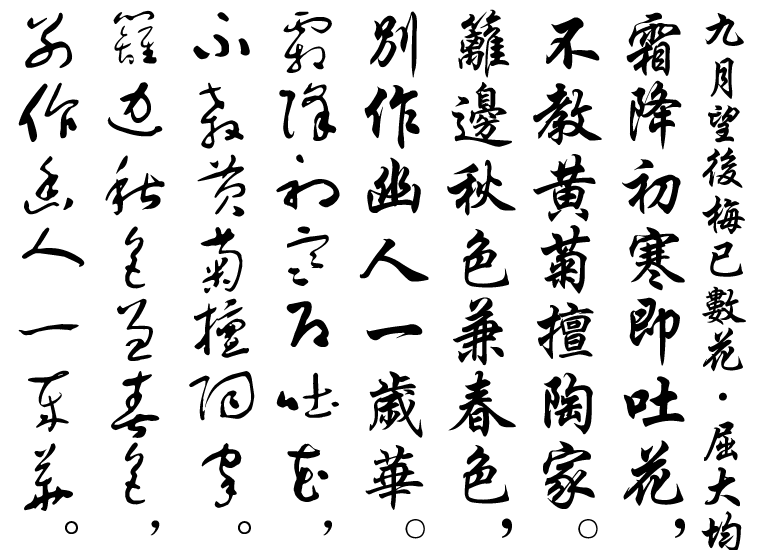 九月望後梅已數花・屈大均
霜降初寒即吐花，
不教黃菊擅陶家。
籬邊秋色兼春色，
別作幽人一歲華。
霜降初寒即吐花，
不教黃菊擅陶家。
籬邊秋色兼春色，
別作幽人一歲華。